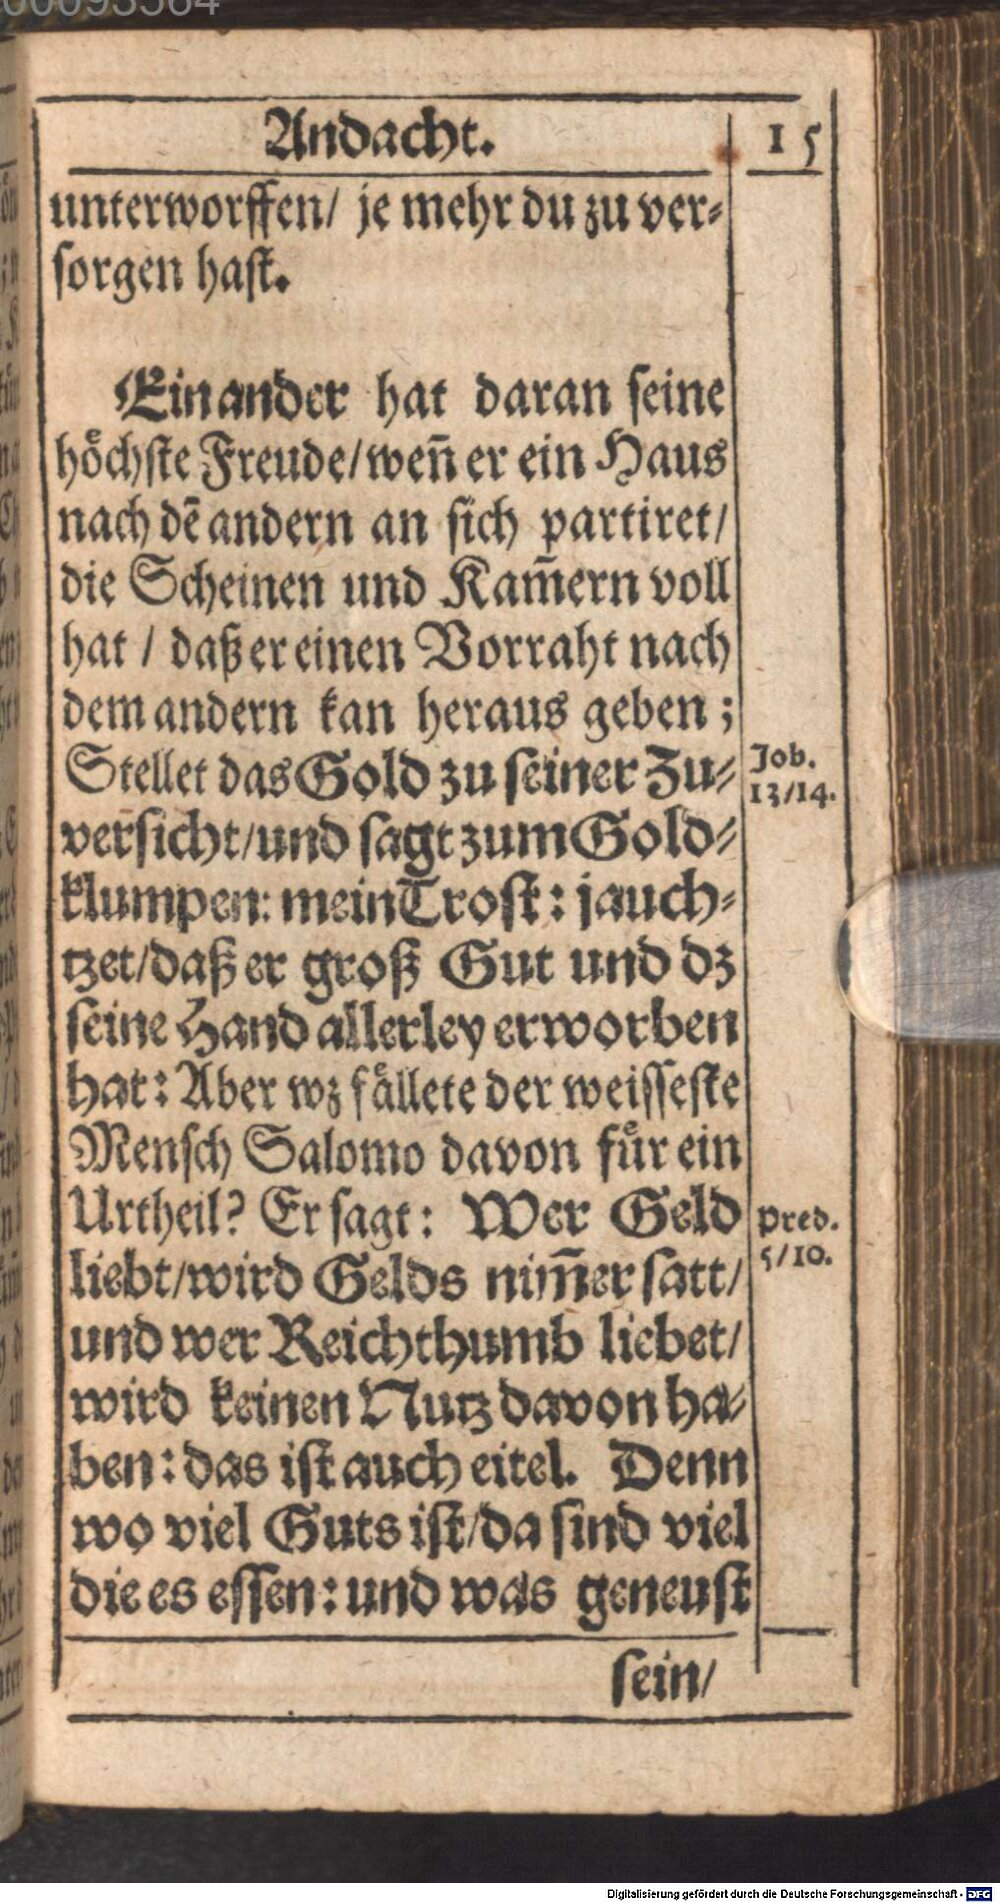 Andacht. 15
unterworffen/ je mehr du zu ver⸗
sorgen hast.
Ein ander hat daran seine
hoͤchste Freude/ wen̄ er ein Haus
nach dē andern an sich partiret/
die Scheinen und Kam̄ern voll
hat / daß er einen Vorraht nach
dem andern kan heraus geben ;
Stellet das Gold zu seiner Zu⸗
versicht/ und sagt zum Gold⸗
klumpen: mein Trost : jauch⸗
tzet/ daß er groß Gut und dz
seine Hand allerley erworben
hat : Aber wz faͤllete der weisseste
Mensch Salomo davon fuͤr ein
Urtheil? Er sagt : Wer Geld
liebt/ wird Gelds nim̄er satt/
und wer Reichthumb liebet/
wird keinen Nutz davon ha⸗
ben : das ist auch eitel. Denn
wo viel Guts ist/ da sind viel
die es essen : und was geneust
sein/
Job.
13/14.
Pred.
5/10.
00093564
Digitalisierung gefördert durch die Deutsche Forschungsgemeinschaft - DFG